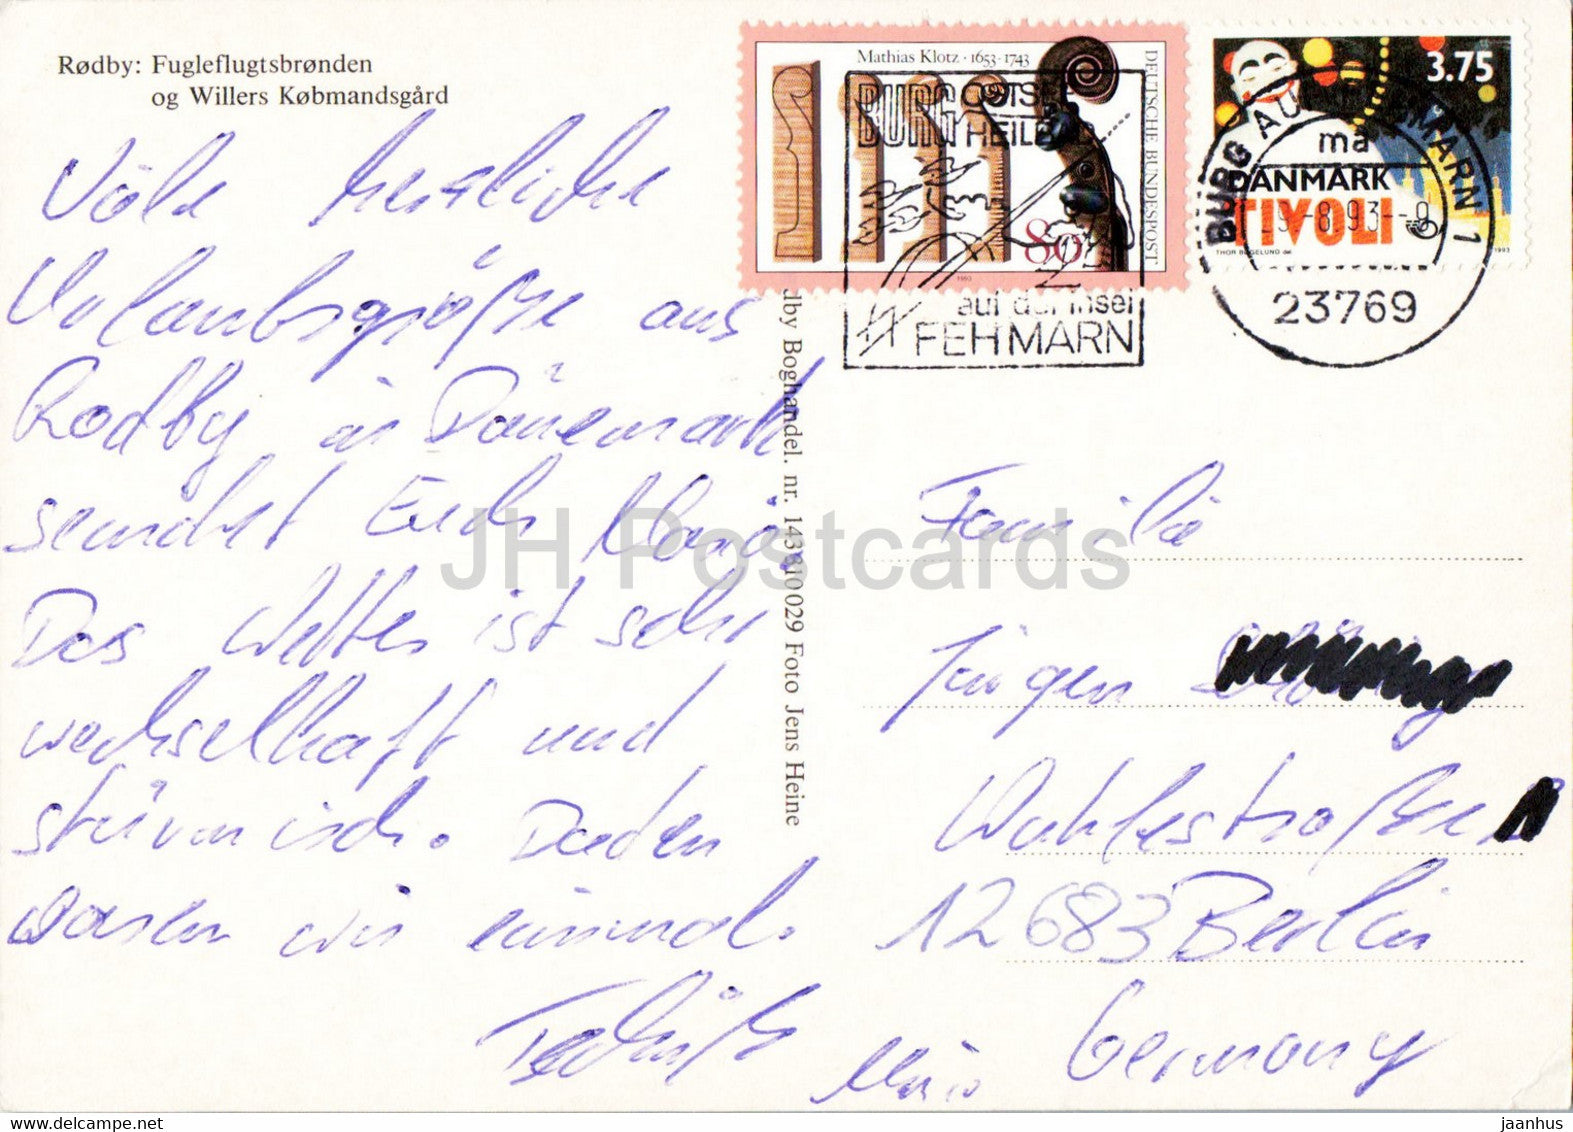 Rødby: Fugleflugtsbrønden
og Willers Købmandsgård
Mathias Klotz · 1653 · 1743
DEUTSCHE BUNDESPOST
80
1993
3.75
DANMARK
TIVOLI
THOR BØGELUND del.
1993
BURG OSTSEE
HEILBAD
auf der Insel
FEHMARN
BURG AUF FEHMARN 1
ma
-8.93--9
23769
Viele herzliche
Urlaubsgrüße aus
Rodby in Dänemark
sendet Euch Mario.
Das Wetter ist sehr
wechselhaft und
stürmisch. Baden
waren wir einmal.
Tschüß
Mario
dby Boghandel. nr. 143610029 Foto Jens Heine
Familie
Jürgen
12683 Berlin
Germany
JH Postcards
www.delcampe.net
jaanhus